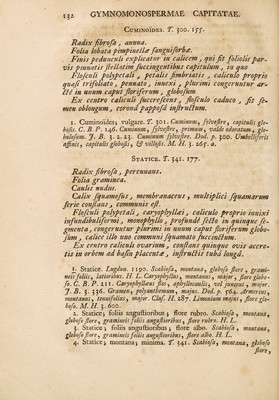 132 GYMNOMONOSPERMAE CAPITATAE.
CUMINOÏDES. T. 300. 155.
Radix fibrosa, annua.
Folia lobata pimpinellæ sanguisorbæ.
Finis pedunculi explicatur in calicem, qui fit foliolis par-
vis pinnatis stellatim succingentibus capitulum, in quo
Flosculi polypetali, petalis fimbriatis, caliculo proprio
quasi trifoliato, pennato, innexi, plurimi congeruntur ar-
cte in unum caput floriferum, globosum
Ex centro caliculi succrescens, flosculo caduco, fit se-
men oblongum, corona papposa instructum.
1. Cuminoïdes; vulgare. T. 301. Cuminum, silvestre, capitulis glo-
bosis. C. B. P. 146. Cuminum, silvestre, primum, valde odoratum, glo-
bulosum. J. B. 3. 2. 23. Cuminum silvestre. Dod. p. 300. Umbelliferis
affinis, capitulis globosis, & villosis. M. H. 3. 265. a.
STATICE. T. 341. 177.
Radix fibrosa, perennans.
Folia graminea.
Caulis nudus.
Calix squamosus, membranaceus, multiplici squamarum
serie constans, communis est.
Flosculi polypetali, caryophyllæi, caliculo proprio innixi
infundibuliformi, monophyllo, profunde secto in quinque se-
gmenta, congeruntur plurimi in unum caput floriferum globo-
sum, calice illo uno communi squamato succinctum.
Ex centro caliculi ovarium, constans quinque ovis accre-
tis in orbem ad basin placentæ, instructis tuba longâ.
1. Statice. Lugdun. 1190. Scabiosa, montana, globoso flore, grami-
neis foliis, latioribus. H. L. Caryophyllus, montanus, major, flore globo-
so. C. B. P. 211. Caryophyllæus flos, aphyllocaulos, vel junceus, major.
J. B. 3. 336. Gramen, polyanthemum, majus. Dod. p. 564. Armerius,
montanus, tenuifolius, major. Clus. H. 287. Limonium majus, flore glo-
boso. M. H. 3. 600.
2. Statice; foliis angustioribus; flore rubro. Scabiosa, montana,
globoso flore, gramineis foliis angustioribus, flore rubro. H. L.
3. Statice; foliis angustioribus; flore albo. Scabiosa, montana,
globoso flore, gramineis foliis angustioribus, flore albo. H. L.
4. Statice; montana; minima. T. 341. Scabiosa, montana, globoso
flore,